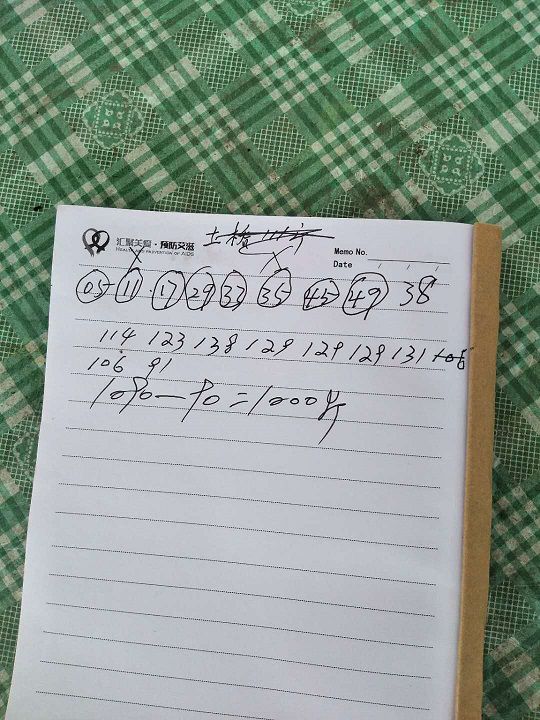 汇聚关爱·预防艾滋
HEALTH AND PREVENTION OF AIDS
土桥
Memo No.
Date / / /
05 11 17 29 33 35 45 49 38
114 123 138 129 129 129 131 106
106 91
1090-90=1000斤